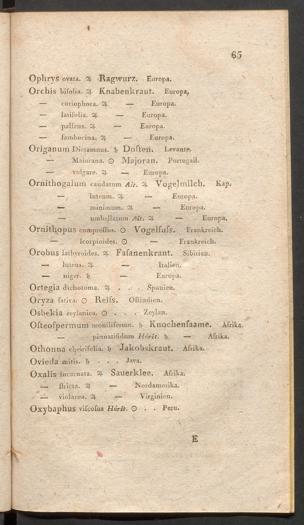 65
Ophrys ovata. ♃ Ragwurz. Europa.
Orchis bifolia. ♃ Knabenkraut. Europa,
— coriophora. ♃ — Europa.
— latifolia. ♃ — Europa.
— pallens. ♃ — Europa.
— sambucina. ♃ — Europa.
Origanum Dictamnus. ♄ Dosten. Levante.
— Majorana. ☉ Majoran. Portugall.
— vulgare. ♃ — Europa.
Ornithogalum caudatum Ait. ♃ Vogelmilch. Kap.
— luteum. ♃ — Europa.
— minimum. ♃ — Europa.
— umbellatum Ait. ♃ — Europa,
Ornithopus compressus. ☉ Vogelfuſs. Frankreich.
— scorpioides. ☉ — Frankreich.
Orobus lathyroides. ♃ Faſanenkraut. Sibirien.
— luteus. ♃ — Italien.
— niger. ♄ — Europa.
Ortegia dichotoma. ♃ . . . Spanien.
Oryza ſativa. ☉ Reiſs. Oſtindien.
Osbekia zeylanica. ☉ . . . Zeylan.
Oſteoſpermum moniliferum. ♄ Knochenſaame. Afrika.
— pinnatifidum Hérit. ♄ — Afrika.
Othonna cheirifolia. ♄ Jakobskraut. Afrika.
Ovieda mitis. ♄ . . . Java.
Oxalis incarnata. ♃ Sauerklee. Afrika.
— ſtricta. ♃ — Nordamerika.
— violacea. ♃ — Virginien.
Oxybaphus viſcoſus Hérit. ☉ . . Peru.
E